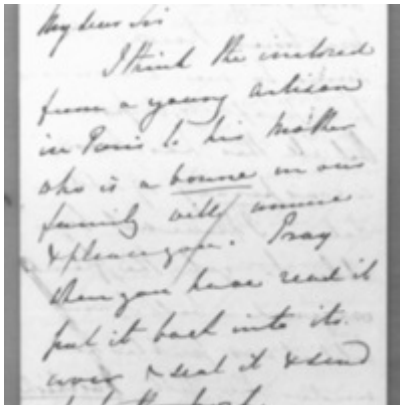 My dear Sir
I think the inclosed
from a young artisan
in Paris to his mother
who is a bonne in our
family will amuse
& please you. Pray
when you have read it
put it back into its
cover & seal it & send